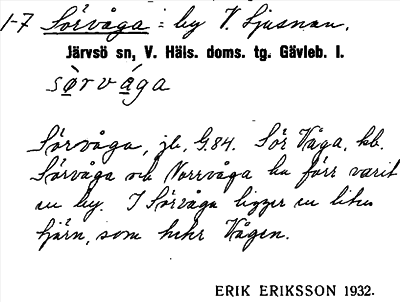 1-7 Sörvåga: by V. Ljusnan.
Järvsö sn, V. Häls. doms. tg. Gävleb. l.
sørvåga
Sörvåga, jb, G.84. Sör Våga, kb.
Sörvåga och Norrvåga ha förr varit
en by. I Sörvåga ligger en liten
tjärn, som heter Vågen.
ERIK ERIKSSON 1932.